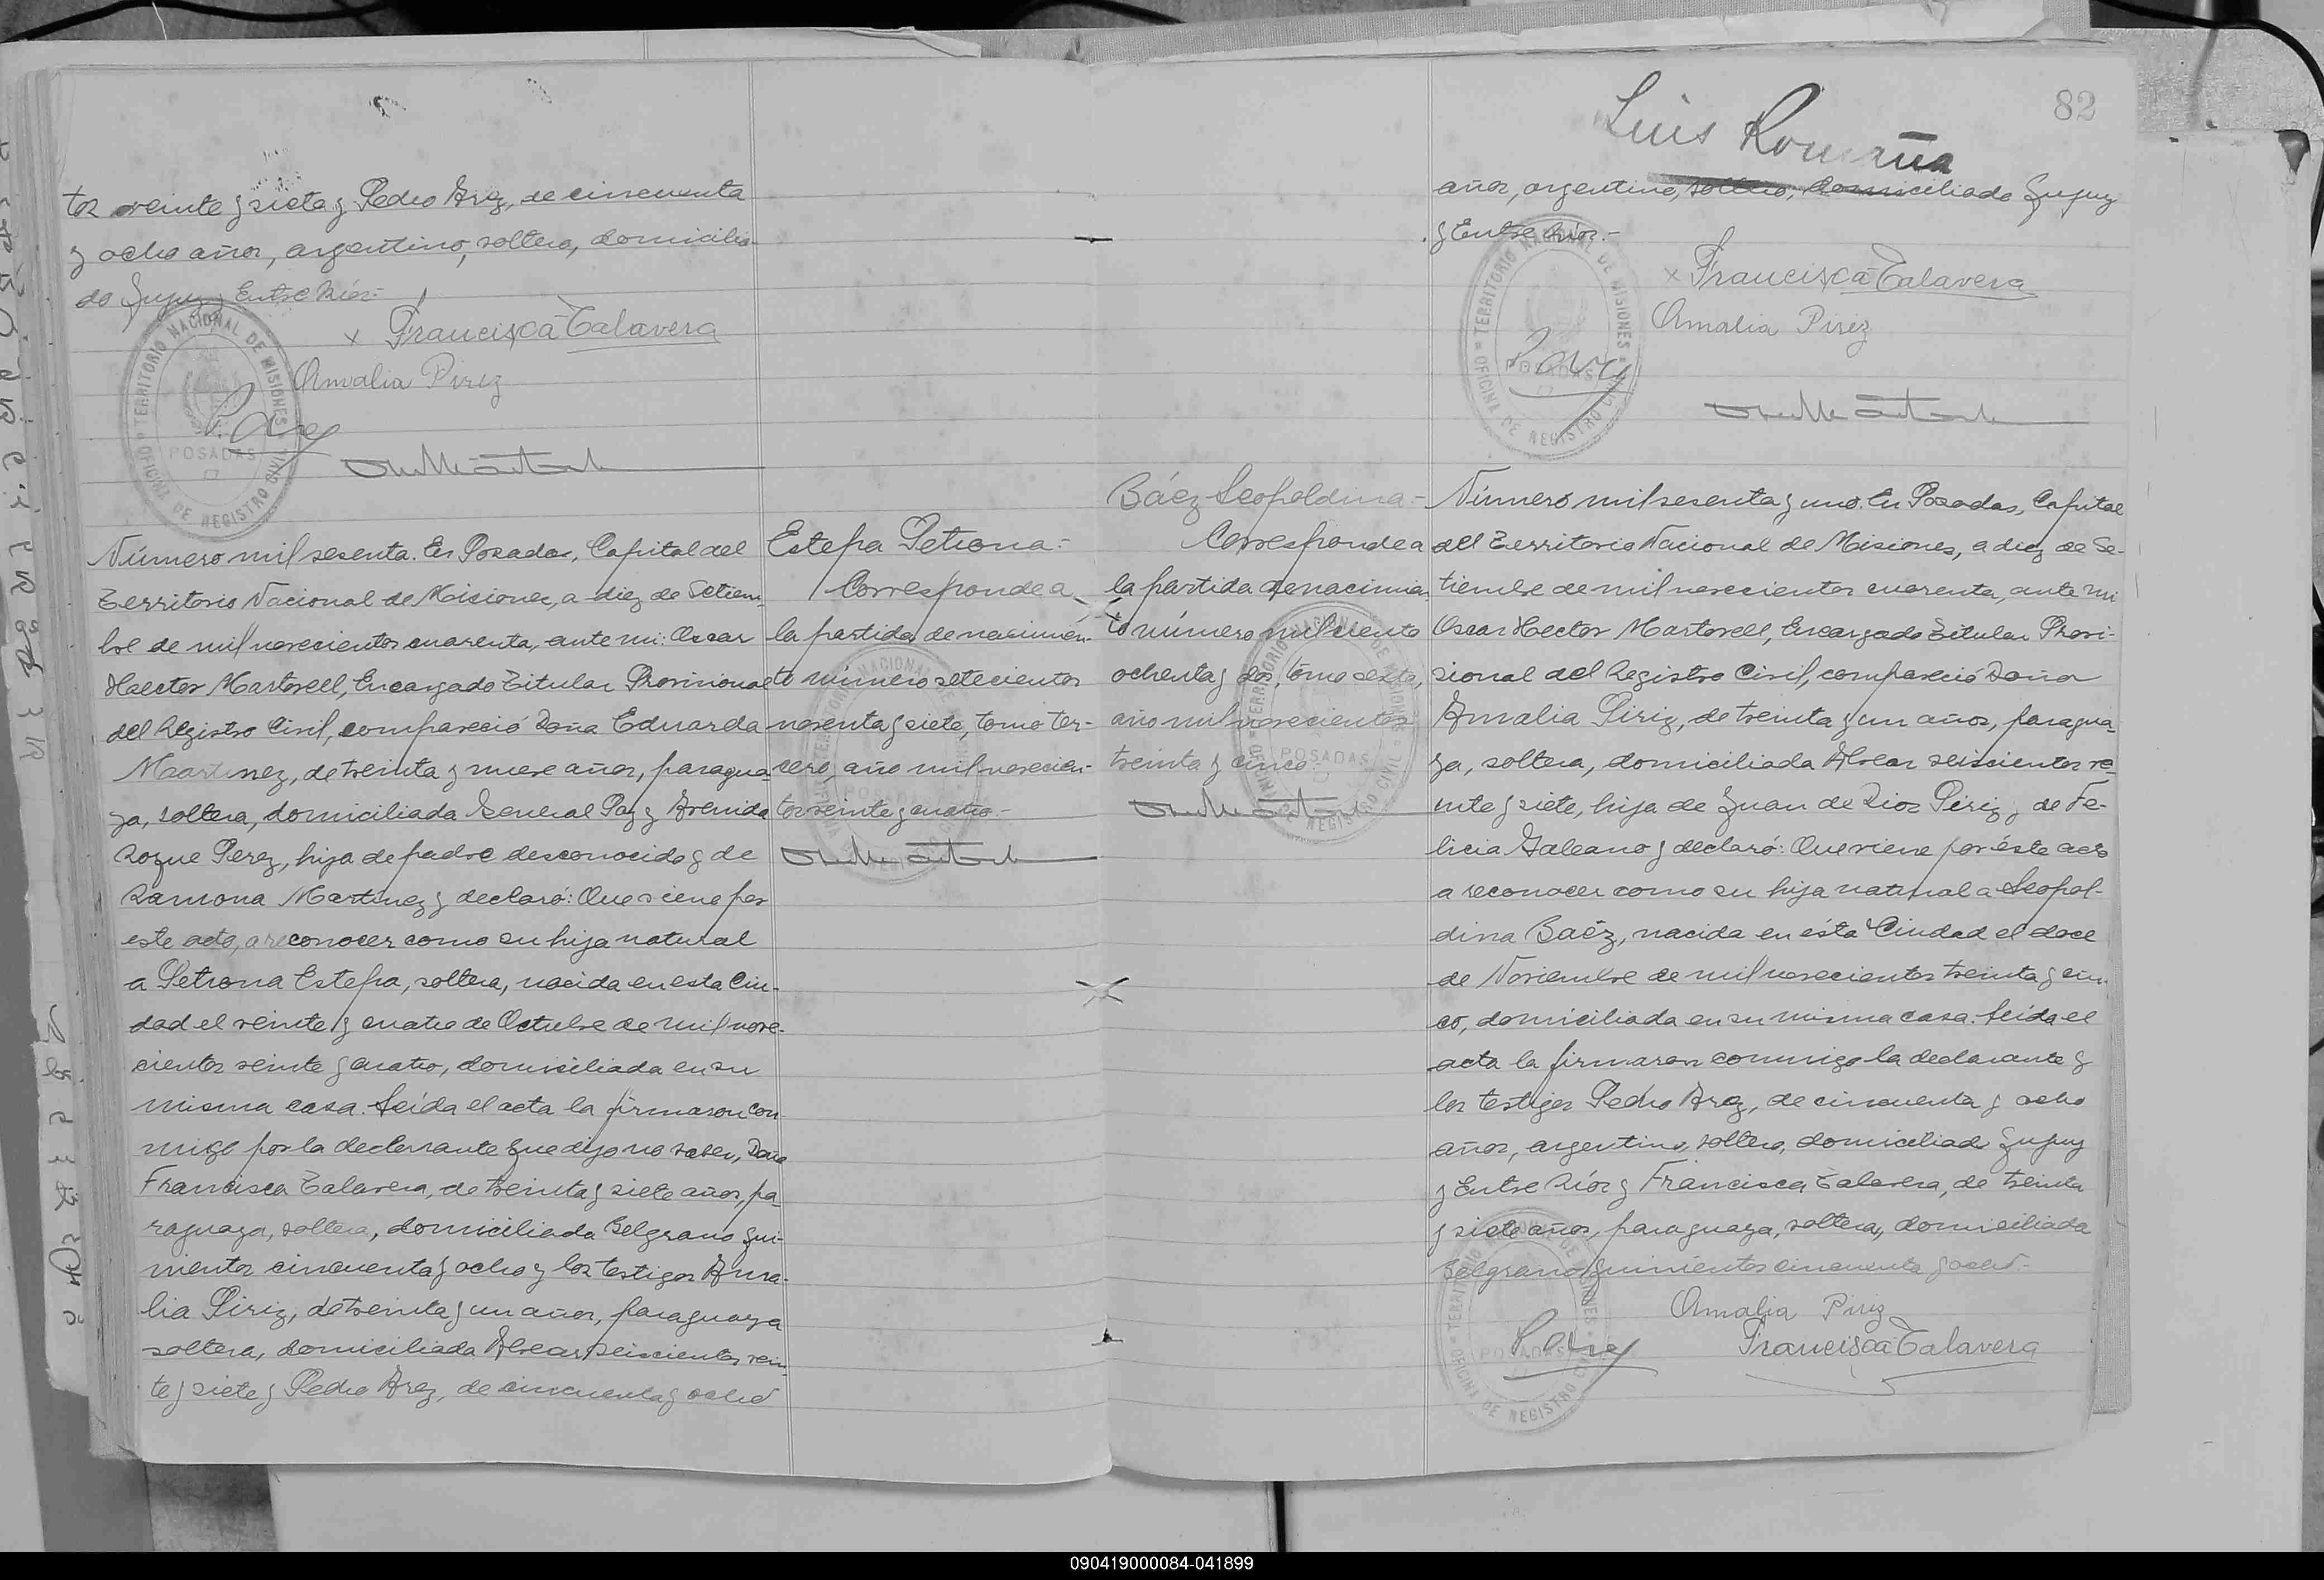 tos veinte y siete y Pedro Arez, de cincuenta
y ocho años, argentino, soltero, domicilia-
do Jujuy y Entre Ríos.-
x Francisca Talavera
Amalia Piriz
P. Arez
TERRITORIO NACIONAL DE MISIONES
POSADAS
OFICINA DE REGISTRO CIVIL
Número mil sesenta. En Posadas, Capital del
Territorio Nacional de Misiones, a diez de Setiem-
bre de mil novecientos cuarenta, ante mi: Oscar
Haector Martorell, Encargado Titular Provisional
del Registro Civil, compareció Doña Eduarda
Martinez, de treinta y nueve años, paragua-
ya, soltera, domiciliada General Paz y Avenida
Roque Perez, hija de padre desconocido y de
Ramona Martinez y declaró: Que viene por
este acto, a reconocer como su hija natural
a Petrona Estepa, soltera, nacida en esta Ciu-
dad el veinte y cuatro de Octubre de mil nove-
cientos veinte y cuatro, domiciliada en su
misma casa. Leída el acta la firmaron con-
migo por la declarante que dijo no saber, Doña
Francisca Talavera, de treinta y siete años, pa-
raguaya, soltera, domiciliada Belgrano qui-
nientos cincuenta y ocho y los testigos Ama-
lia Piriz, de treinta y un años, paraguaya
soltera, domiciliada Alvear seiscientos vein-
te y siete y Pedro Arez, de cincuenta y ocho
Estepa Petrona:-
Corresponde a
la partida de nacimien-
to número setecientos
noventa y siete, tomo ter-
cero, año mil novecien-
tos veinte y cuatro.-
82
Luis Romaña
años, argentino, soltero, domiciliado Jujuy
y Entre Ríos.-
x Francisca Talavera
Amalia Piriz
P. Arez
TERRITORIO NACIONAL DE MISIONES
POSADAS
OFICINA DE REGISTRO CIVIL
Báez Leopoldina.-
Corresponde a
la partida de nacimien-
to número mil ciento
ochenta y dos, tomo sexto,
año mil novecientos
treinta y cinco.-
Número mil sesenta y uno. En Posadas, Capital
del Territorio Nacional de Misiones, a diez de Se-
tiembre de mil novecientos cuarenta, ante mi
Oscar Hector Martorell, Encargado Titular Provi-
sional del Registro Civil, compareció Doña
Amalia Piriz, de treinta y un años, paragua-
ya, soltera, domiciliada Alvear seiscientos ve-
inte y siete, hija de Juan de Dios Piriz y de Fe-
licia Galeano y declaró: Que viene por éste acto
a reconocer como su hija natural a Leopol-
dina Baéz, nacida en ésta Ciudad el doce
de Noviembre de mil novecientos treinta y cin-
co, domiciliada en su misma casa. Leída el
acta la firmaron conmigo la declarante y
los testigos Pedro Arez, de cincuenta y ocho
años, argentino, soltero, domiciliado Jujuy
y Entre Ríos y Francisca Talavera, de treinta
y siete años, paraguaya, soltera, domiciliada
Belgrano quinientos cincuenta y ocho.-
Amalia Piriz
P. Arez
Francisca Talavera
090419000084-041899